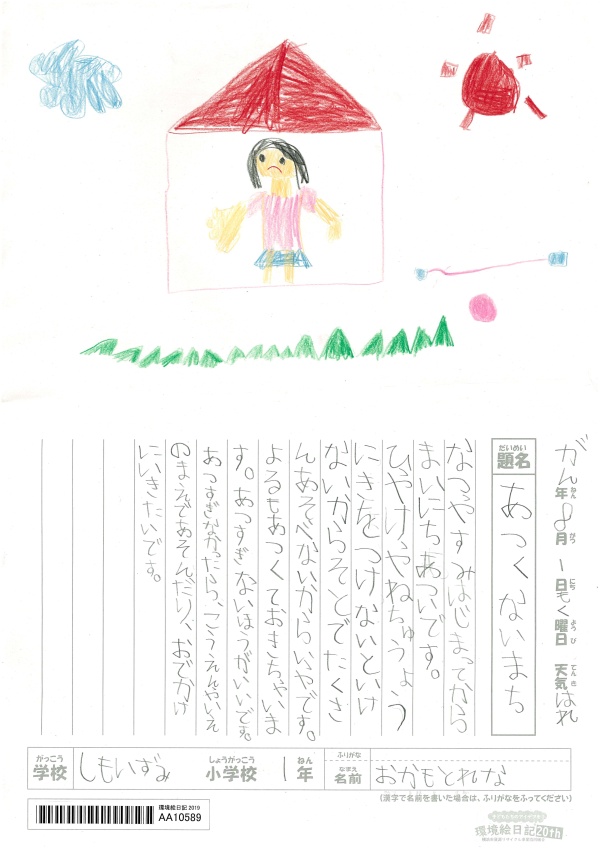 がん年 8月 1日もく曜日 天気はれ
ねん がつ にち ようび てんき
だいめい
題名 あつくないまち
なつやすみはじまってから
まいにちあついです。
ひやけやねちゅうしょう
にきをつけないといけ
ないからそとでたくさ
んあそべないからいやです。
よるもあつくておきちゃいま
す。あつすぎないほうがいいです。
あつすぎなかったら、こうえんやいえ
のまえであそんだり、おでかけ
にいきたいです。
がっこう しょうがっこう ねん
学校 しもいずみ 小学校 1年
ふりがな
なまえ
名前 おかもとれな
(漢字で名前を書いた場合は、ふりがなをふってください)
環境絵日記 2019
AA10589
環境絵日記20th